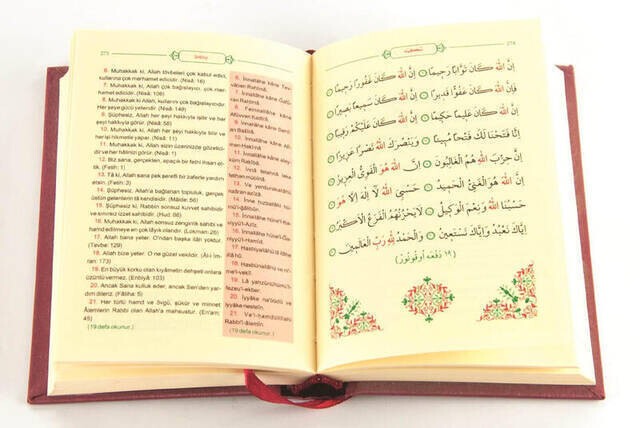 275
6. Muhakkak ki, Allah tövbeleri çok kabul edici,
kullarına çok merhamet edicidir. (Nisâ: 16)
7. Muhakkak ki, Allah çok bağışlayıcı, çok
merhamet edicidir. (Nisâ: 106)
8. Muhakkak ki Allah, kullarını çok bağışlayıcıdır.
Her şeye gücü yetendir. (Nisâ: 149)
9. Şüphesiz, Allah her şeyi hakkıyla işitir ve her
şeyi hakkıyla görür. (Nisâ: 58)
10. Muhakkak ki Allah her şeyi hakkıyla bilir ve
her işi hikmetle yapar. (Nisâ: 11)
11. Muhakkak ki, Allah sizin üzerinizde gözetici
ve her hâlinizi görendir. (Nisâ: 1)
12. Biz sana, gerçekten, apaçık bir fetih ihsan et-
tik. (Fetih: 1)
13. Tâ ki, Allah sana pek şerefli bir zaferle yardım
etsin. (Fetih: 3)
14. Şüphesiz, Allah'a bağlanan topluluk, gerçek
üstün gelenlerin tâ kendisidir. (Mâide: 56)
15. Şüphesiz ki, Rabbin sonsuz kuvvet sahibidir
ve sınırsız izzet sahibidir. (Hud: 66)
16. Muhakkak ki, Allah sonsuz zenginlik sahibi ve
hamd edilmeye en çok lâyık olandır. (Lokman: 26)
17. Allah bana yeter. O'ndan başka ilâh yoktur.
(Tevbe: 129)
18. Allah bize yeter. O ne güzel vekildir. (Âl-i İm-
ran: 173)
19. En büyük korku olan kıyâmetin dehşeti onlara
üzüntü vermez. (Enbiyâ: 103)
20. Ancak Sana kulluk eder, ancak Sen'den yar-
dım dileriz. (Fâtiha: 5)
21. Her türlü hamd ve övgü, şükür ve minnet
Âlemlerin Rabbi olan Allah'a mahsustur. (En'am:
45)
(19 defa okunur.)
6. İnnallâhe kâne Tev-
vâben Rahîmâ.
7. İnnallâhe kâne Ğafû-
ran Rahîmâ.
8. Feinnallâhe kâne
9. İnnallâhe kâne
10. İnnallâhe kâne Alî-
men Hakîmâ.
11. İnnallâhe kâne aleyküm
Rakîbâ.
12. İnnâ fetehnâ leke
fethan mübînâ.
13. Ve yensurakallâhu
nasran azîzâ.
14. İnne hizballâhi hü-
15. İnnallâhe hüvel-kaviy-
yü'l-Azîz.
16. İnnallâhe hüvel-ğaniy-
yü'l-Hamîd.
17. Hasbiyallâhü lâ ilâhe
illâ hû.
18. Hasbünallâhü ve ni'-
me'l-vekîl.
19. Lâ yahzünühümü'l-
feze'u'l-ekber.
20. İyyâke na'budü ve
iyyâke nesteîn.
21. Ve'l-hamdülillâhi
Rabbi'l-âlemîn.
(19 defa okunur.)
٢٧٤
اِنَّ اللّٰهَ كَانَ تَوَّابًا رَحِيمًا ۞ اِنَّ اللّٰهَ كَانَ غَفُورًا رَحِيمًا ۞
فَاِنَّ اللّٰهَ كَانَ عَفُوًّا قَدِيرًا ۞ اِنَّ اللّٰهَ كَانَ سَمِيعًا بَصِيرًا ۞
اِنَّ اللّٰهَ كَانَ عَلِيمًا حَكِيمًا ۞ اِنَّ اللّٰهَ كَانَ عَلَيْكُمْ رَقِيبًا ۞
اِنَّا فَتَحْنَا لَكَ فَتْحًا مُبِينًا ۞ وَيَنْصُرَكَ اللّٰهُ نَصْرًا عَزِيزًا ۞
اِنَّ حِزْبَ اللّٰهِ هُمُ الْغَالِبُونَ ۞ اِنَّ اللّٰهَ هُوَ الْقَوِيُّ الْعَزِيزُ ۞
اِنَّ اللّٰهَ هُوَ الْغَنِيُّ الْحَمِيدُ ۞ حَسْبِيَ اللّٰهُ لَا اِلٰهَ اِلَّا هُوَ ۞
حَسْبُنَا اللّٰهُ وَنِعْمَ الْوَكِيلُ ۞ لَا يَحْزُنُهُمُ الْفَزَعُ الْاَكْبَرُ ۞
اِيَّاكَ نَعْبُدُ وَاِيَّاكَ نَسْتَعِينُ ۞ وَالْحَمْدُ لِلّٰهِ رَبِّ الْعَالَمِينَ
(١٩ دفعه اوقونور)